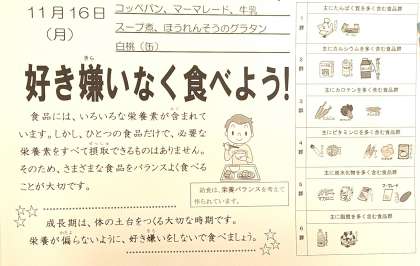 11月16日
(月)
コッペパン、マーマレード、牛乳
スープ煮、ほうれんそうのグラタン
白桃(缶)
好き嫌いなく食べよう!
きら
食品には、いろいろな栄養素が含まれ
ています。しかし、ひとつの食品だけで、必要な
栄養素をすべて摂取できるものはありません。
そのため、さまざまな食品をバランスよく食べる
ことが大切です。
給食は、栄養バランスを考えて
作られています。
成長期は、体の土台をつくる大切な時期です。
栄養が偏らないように、好き嫌いをしないで食べましょう。
1
群
主にたんぱく質を多く含む食品群
2
群
主にカルシウムを多く含む食品群
3
群
主にカロテンを多く含む食品群
4
群
主にビタミンCを多く含む食品群
5
群
主に炭水化物を多く含む食品群
6
群
主に脂質を多く含む食品群